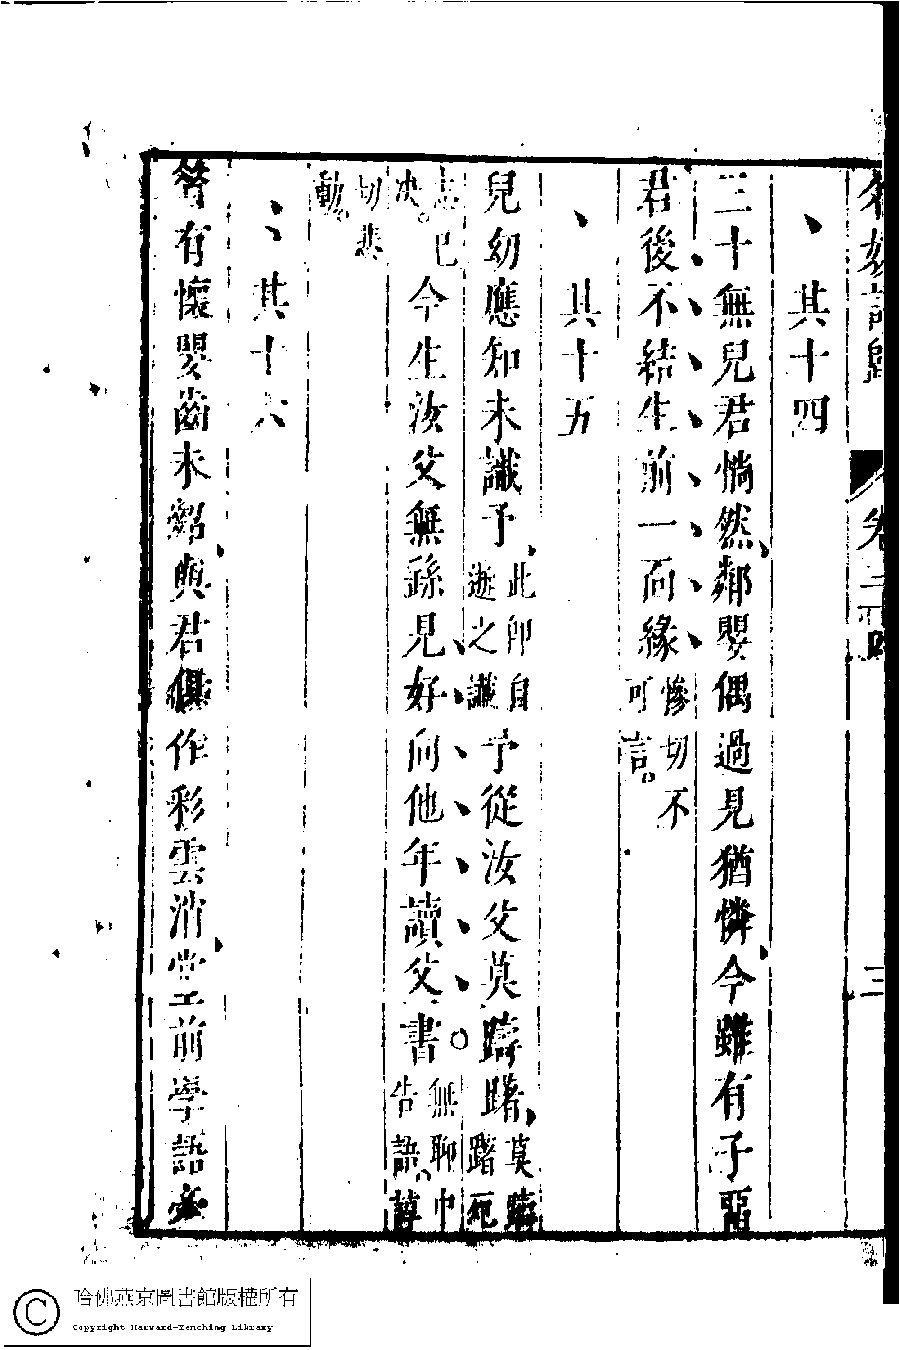 名媛詩歸 卷三十四 三
其十四
三十無兒君惆然鄰嬰偶過見猶憐今雖有子留
君後不結生前一面緣慘切不可言
其十五
兒幼應知未識予此卽自逝之讖予從汝父莫躊躇莫躊躇死
志已决今生汝父無孫見好向他年讀父書無聊中告語尊
切悲動
其十六
箐有懷嬰齒未齠與君俱作彩雲消堂前學語
哈佛燕京圖書館版權所有
Copyright Harvard-Yenching Library